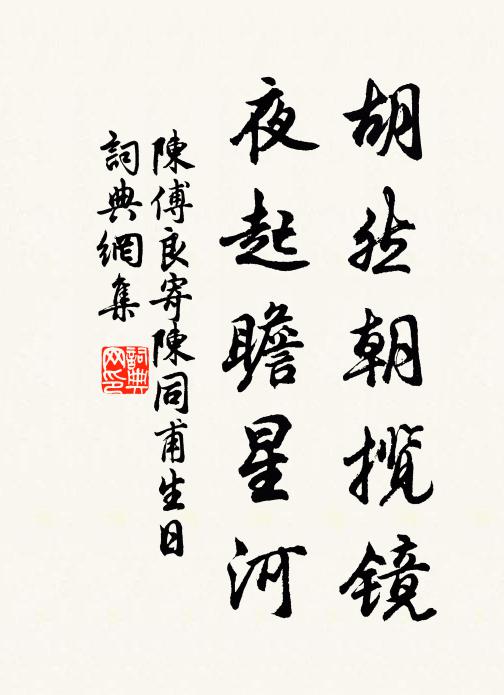 胡然朝揽镜
夜起瞻星河
陳傅良寄陳同甫生日
詞典網集
詞典网印